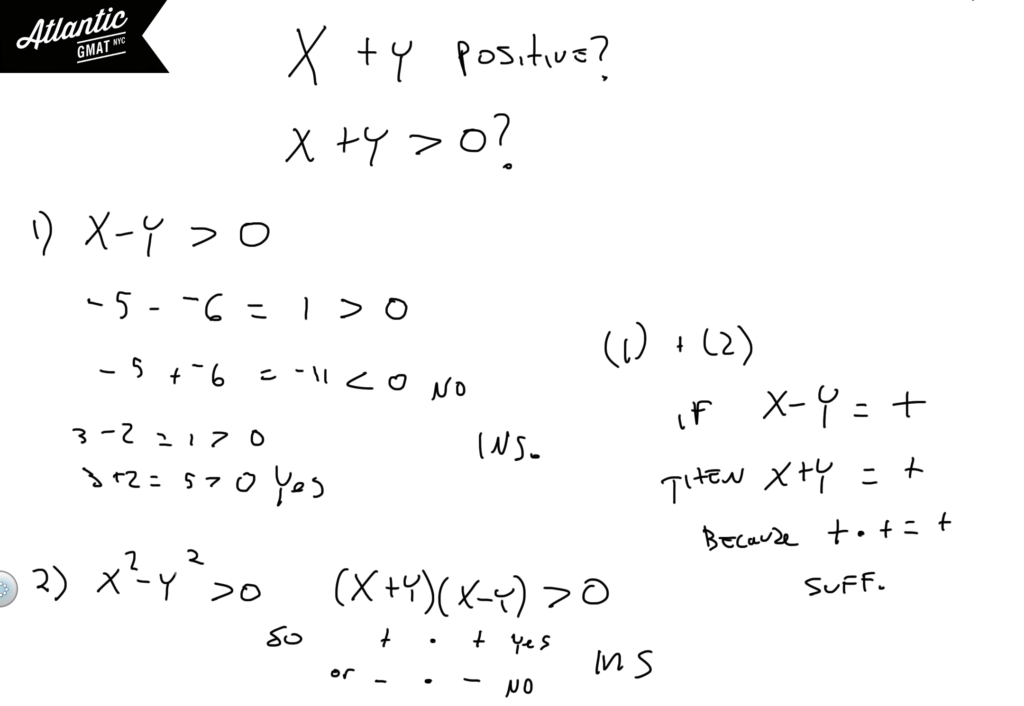 Atlantic
GMAT NYC
X + Y Positive?
X + Y > 0?
1) X - Y > 0
-5 - -6 = 1 > 0
-5 + -6 = -11 < 0 NO
3 - 2 = 1 > 0
3 + 2 = 5 > 0 Yes
INS.
2) X² - Y² > 0 (X + Y)(X - Y) > 0
so + · + Yes
or - · - NO
INS
(1) + (2)
IF X - Y = +
THEN X + Y = +
BECAUSE + · + = +
SUFF.